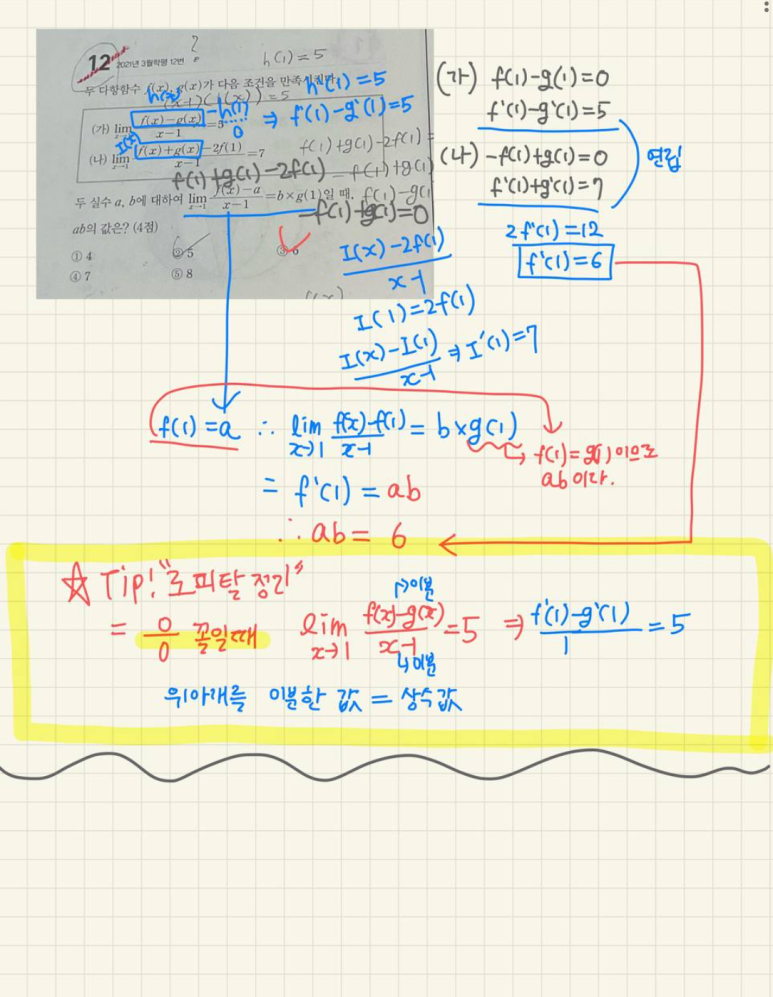 12 2021년 3월학평 12번
h(1) = 5
두 다항함수 f(x), g(x)가 다음 조건을 만족시킨다.
h(x)
h'(1) = 5
(가) lim x→1 f(x)-g(x) / x-1 = 5
-h(1)
0
⇒ f'(1)-g'(1)=5
I(x)
(나) lim x→1 f(x)+g(x)-2f(1) / x-1 = 7
f(1)+g(1)-2f(1) =
f(1)+g(1)-2f(1) = f(1)+g(1)
두 실수 a, b에 대하여 lim x→1 f(x)-a / x-1 = b×g(1)일 때,
f(1)-g(1
-f(1)+g(1)=0
ab의 값은? (4점)
① 4 ② 5 ③ 6
④ 7 ⑤ 8
(가) f(1)-g(1)=0
f'(1)-g'(1)=5
(나) -f(1)+g(1)=0
f'(1)+g'(1)=7
연립
2f'(1)=12
f'(1)=6
I(x)-2f(1) / x-1
I(1)=2f(1)
I(x)-I(1) / x-1 ⇒ I'(1)=7
f(1)=a ∴ lim x→1 f(x)-f(1) / x-1 = b×g(1)
↳ f(1)=g(1)이므로
ab이다.
= f'(1) = ab
∴ ab = 6
☆ Tip! "로피탈 정리"
= 0/0 꼴일때 lim x→1 f(x)-g(x) / x-1 = 5 ⇒ f'(1)-g'(1) / 1 = 5
↱미분
↳미분
위아래를 미분한 값 = 상수값